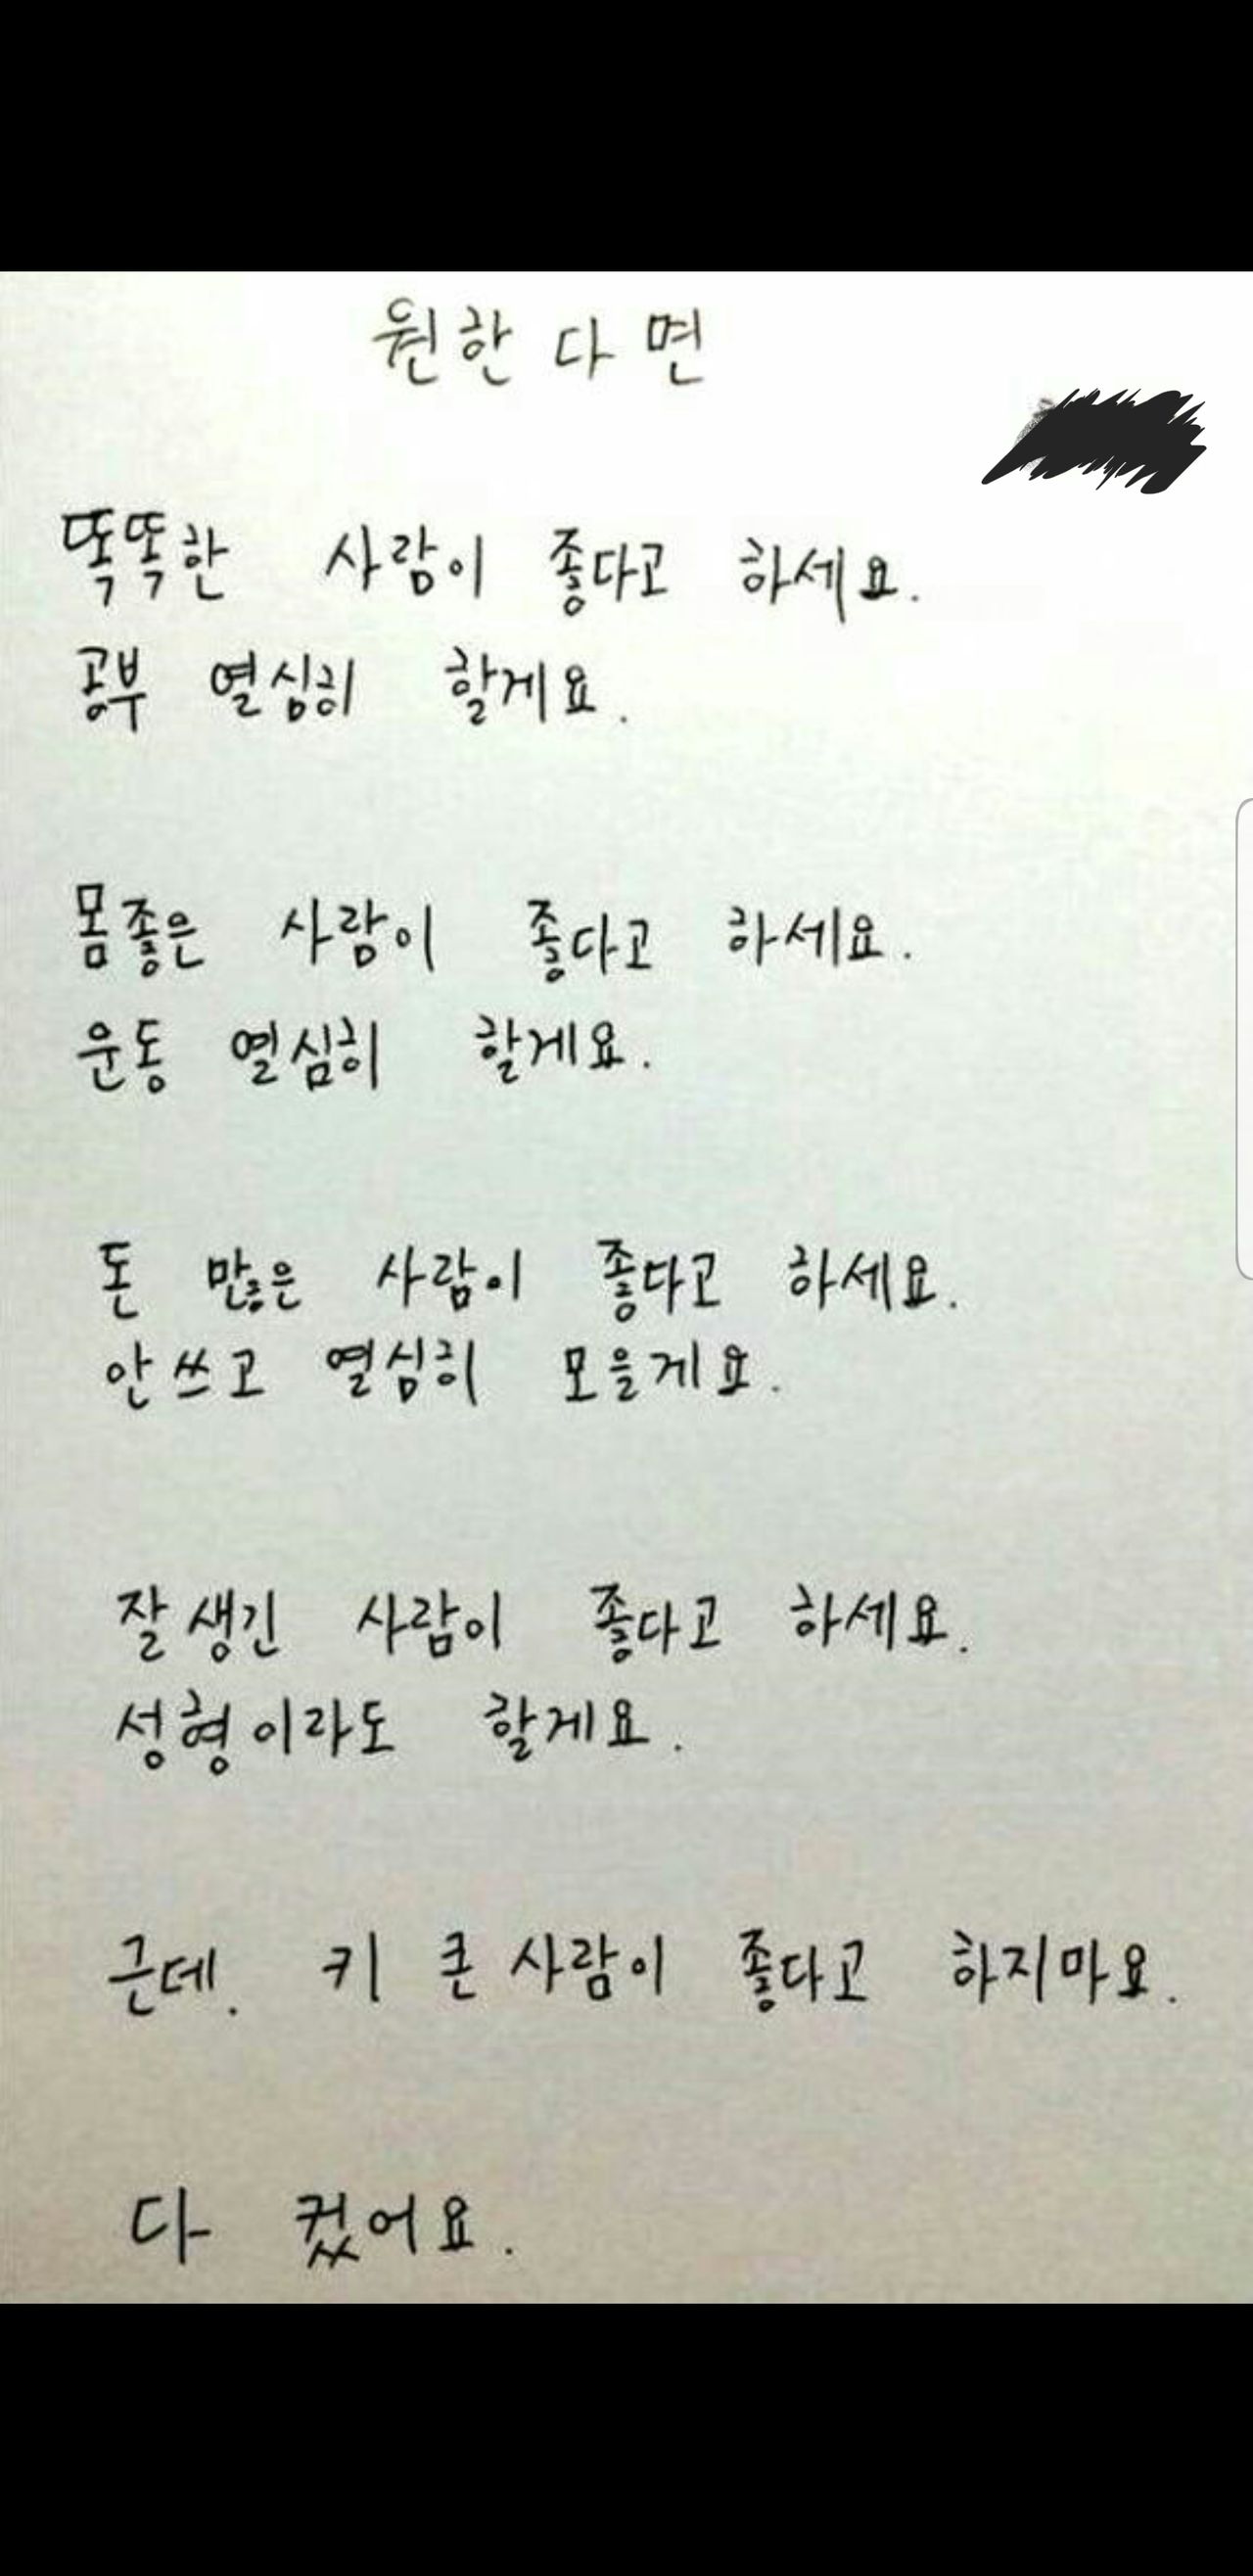 원한다면
똑똑한 사람이 좋다고 하세요.
공부 열심히 할게요.
몸좋은 사람이 좋다고 하세요.
운동 열심히 할게요.
돈 많은 사람이 좋다고 하세요.
안쓰고 열심히 모을게요.
잘생긴 사람이 좋다고 하세요.
성형이라도 할게요.
근데. 키 큰 사람이 좋다고 하지마요.
다 컸어요.